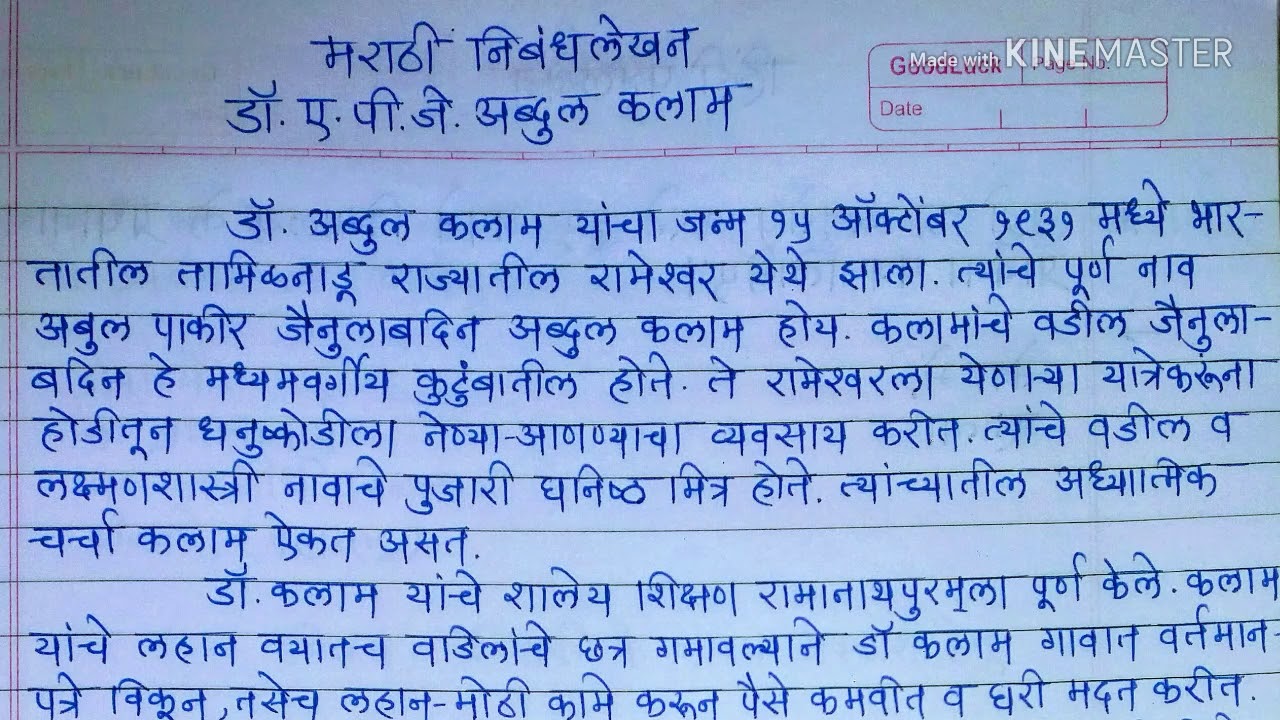 मराठी निबंधलेखन
Made with KINEMASTER
GoodLuck Page No.
डॉ. ए. पी. जे. अब्दुल कलाम
Date
डॉ. अब्दुल कलाम यांचा जन्म १५ ऑक्टोंबर १९३१ मध्ये भार-
तातील तामिळनाडू राज्यातील रामेश्वर येथे झाला. त्यांचे पूर्ण नाव
अबुल पाकीर जैनुलाबदिन अब्दुल कलाम होय. कलामांचे वडील जैनुला-
बदिन हे मध्यमवर्गीय कुटुंबातील होते. ते रामेश्वरला येणाऱ्या यात्रेकरूंना
होडीतून धनुष्कोडीला नेण्या-आणण्याचा व्यवसाय करीत. त्यांचे वडील व
लक्ष्मणशास्त्री नावाचे पुजारी घनिष्ठ मित्र होते. त्यांच्यातील अध्यात्मिक
चर्चा कलाम ऐकत असत.
डॉ. कलाम यांचे शालेय शिक्षण रामानाथपुरम्‌ला पूर्ण केले. कलाम
यांचे लहान वयातच वडिलांचे छत्र गमावल्याने डॉ कलाम गावात वर्तमान-
पत्रे विकून, तसेच लहान-मोठी कामे करून पैसे कमवीत व घरी मदत करीत.